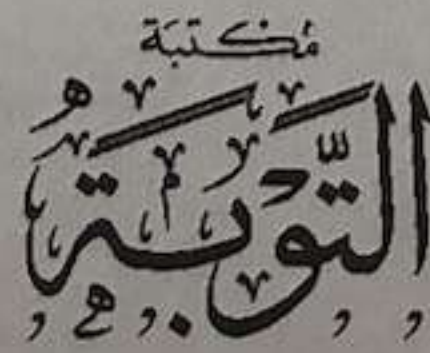 مكتبة
التَّوْبَة